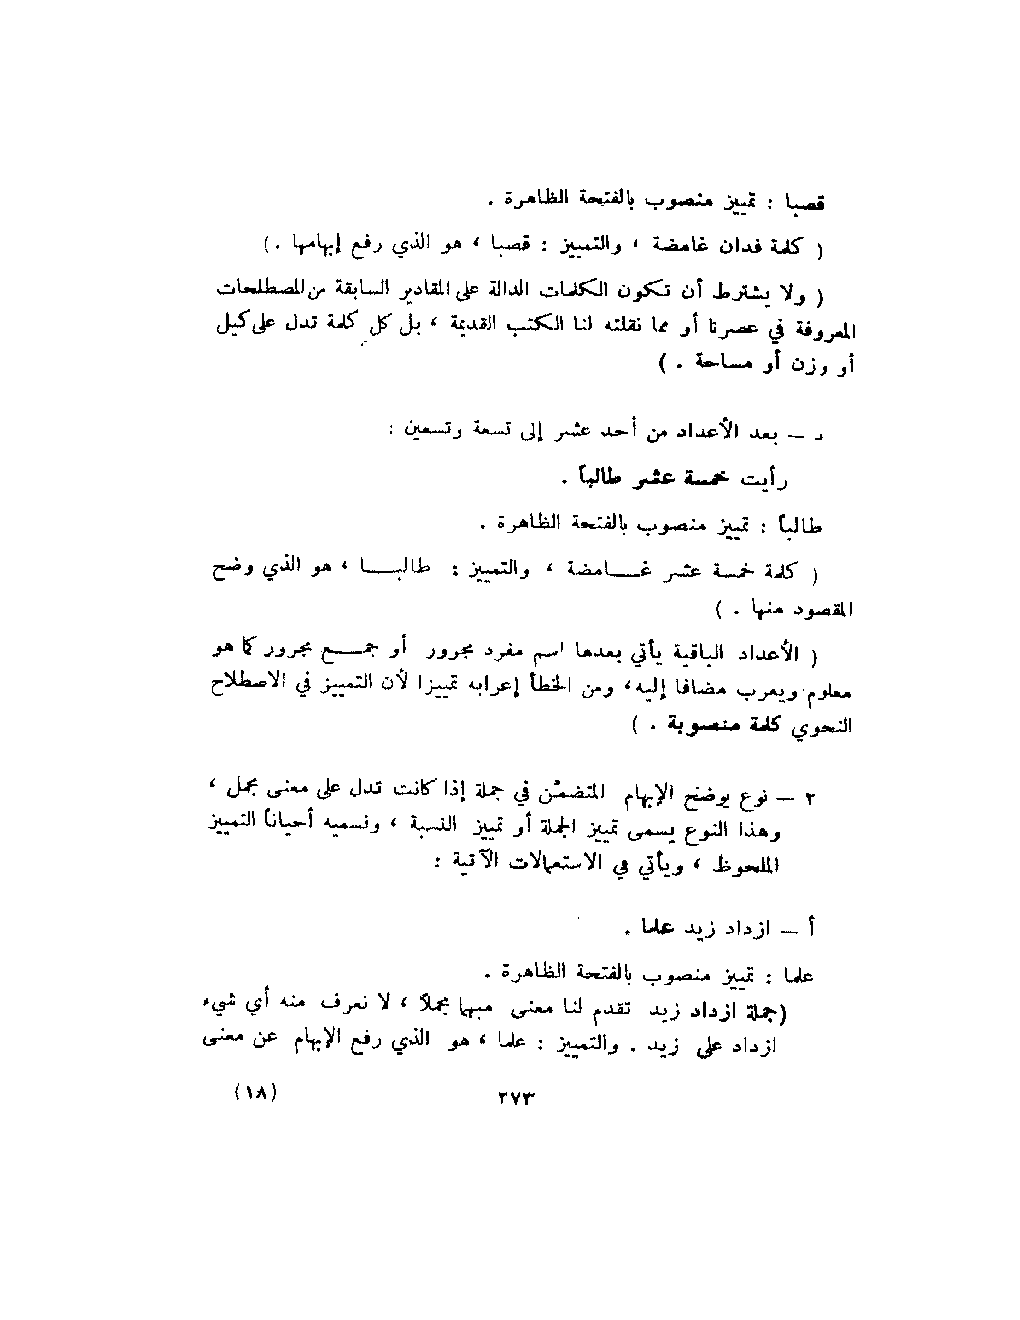 قصبا : تمييز منصوب بالفتحة الظاهرة .
( كلمة فدان غامضة ، والتمييز : قصبا ، هو الذي رفع إبهامها . )
( ولا يشترط أن تكون الكلمات الدالة على المقادير السابقة من المصطلحات
المعروفة في عصرنا أو مما نقلته لنا الكتب القديمة ، بل كل كلمة تدل على كيل
أو وزن أو مساحة . )
د – بعد الأعداد من أحد عشر إلى تسعة وتسعين :
رأيت خمسة عشر طالباً .
طالباً : تمييز منصوب بالفتحة الظاهرة .
( كلمة خمسة عشر غـــامضة ، والتمييز : طالبـــا ، هو الذي وضح
المقصود منها . )
( الأعداد الباقية يأتي بعدها اسم مفرد مجرور أو جمـــع مجرور كما هو
معلوم ويعرب مضافا إليه ، ومن الخطأ إعرابه تمييزا لأن التمييز في الاصطلاح
النحوي كلمة منصوبة . )
٢ – نوع يوضح الإبهام المتضمَّن في جملة إذا كانت تدل على معنى مجمل ،
وهذا النوع يسمى تمييز الجملة أو تمييز النسبة ، ونسميه أحياناً التمييز
الملحوظ ، ويأتي في الاستعمالات الآتية :
أ – ازداد زيد علما .
علما : تمييز منصوب بالفتحة الظاهرة .
(جملة ازداد زيد تقدم لنا معنى مبهما مجملاً ، لا نعرف منه أي شيء
ازداد على زيد . والتمييز : علما ، هو الذي رفع الإبهام عن معنى
٢٧٣
(١٨)